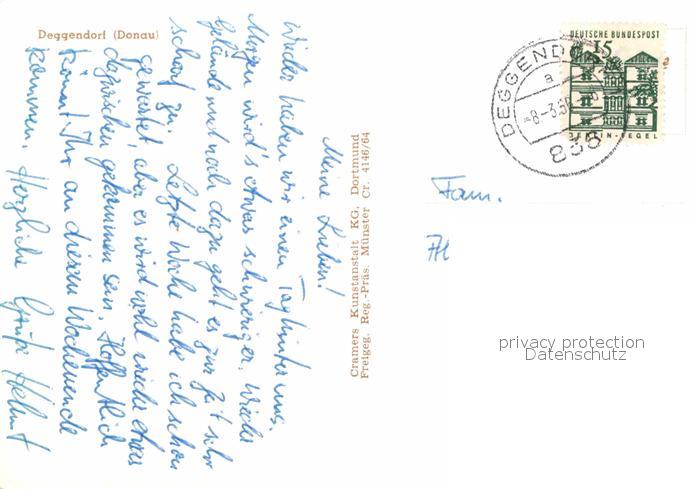 Deggendorf (Donau)
Meine Lieben!
Wieder haben wir einen Tag hinter uns.
Morgen wird's etwas schwieriger. Wieder
Gelände und noch dazu geht es zur Zeit sehr
scharf zu. Letzte Woche habe ich schon
gewartet, aber es wird wohl wieder etwas
dazwischen gekommen sein. Hoffentlich
könnt Ihr an diesem Wochenende
kommen. Herzliche Grüße Helmut
Cramers Kunstanstalt KG, Dortmund
Freigeg. Reg.-Präs. Münster Cr. 4146/64
DEUTSCHE BUNDESPOST
15
BERLIN-TEGEL
DEGGENDORF
a
-8-3.66
835
Fam.
privacy protection
Datenschutz